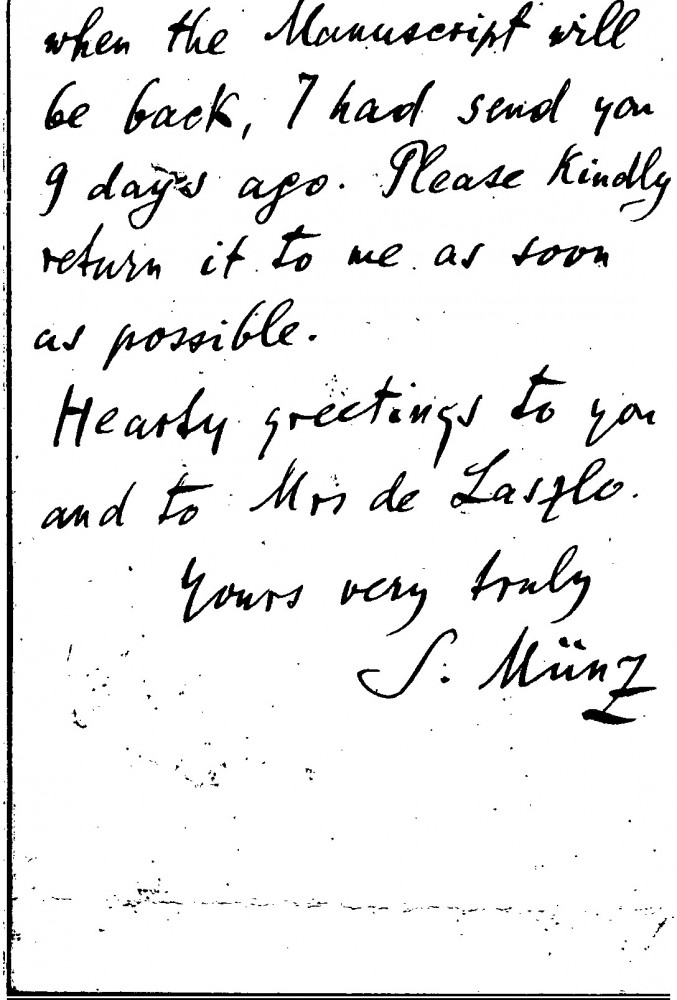 when the Manuscript will
be back, I had send you
9 days ago. Please Kindly
return it to me as soon
as possible.
Hearty greetings to you
and to Mrs de Laszlo.
Yours very truly
S. Münz